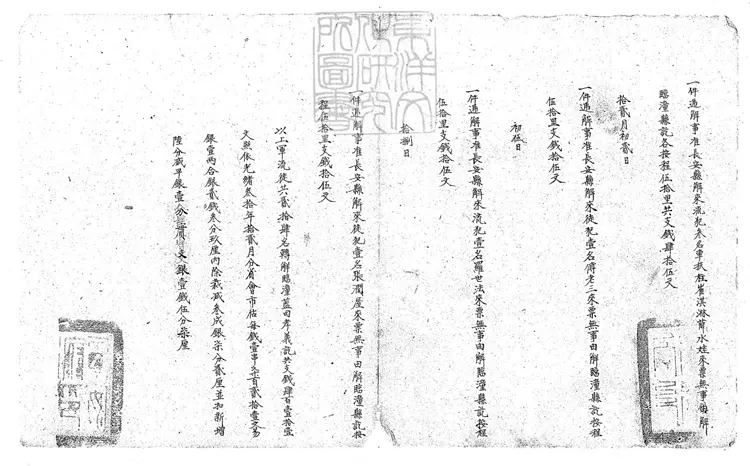 一件遞解事准長安縣解來流犯叁名軍犯崔淇淋薛水娃來票無事由解
臨潼縣訖各按程伍拾里共支錢肆拾伍文
拾貳月初貳日
一件遞解事准長安縣解來徒犯壹名傅老三來票無事由解臨潼縣訖按程
伍拾里支錢拾伍文
初伍日
一件遞解事准長安縣解來流犯壹名羅世法來票無事由解臨潼縣訖按程
伍拾里支錢拾伍文
拾捌日
一件遞解事准長安縣解來徒犯壹名張潤屋來票無事由解臨潼縣訖按
程伍拾里支錢拾伍文
以上軍流徒共貳拾肆名轉解臨潼藍田孝義訖共支錢肆百壹拾壹
文照依光緒叁拾年拾貳月分省會市估每錢壹串柒百貳拾壹文易
銀壹兩合銀貳錢叁分玖厘內除裁減叁成銀柒分貳厘並扣新增
陸分減平銀壹分實支銀壹錢伍分柒厘
東洋文
化研究
所圖書